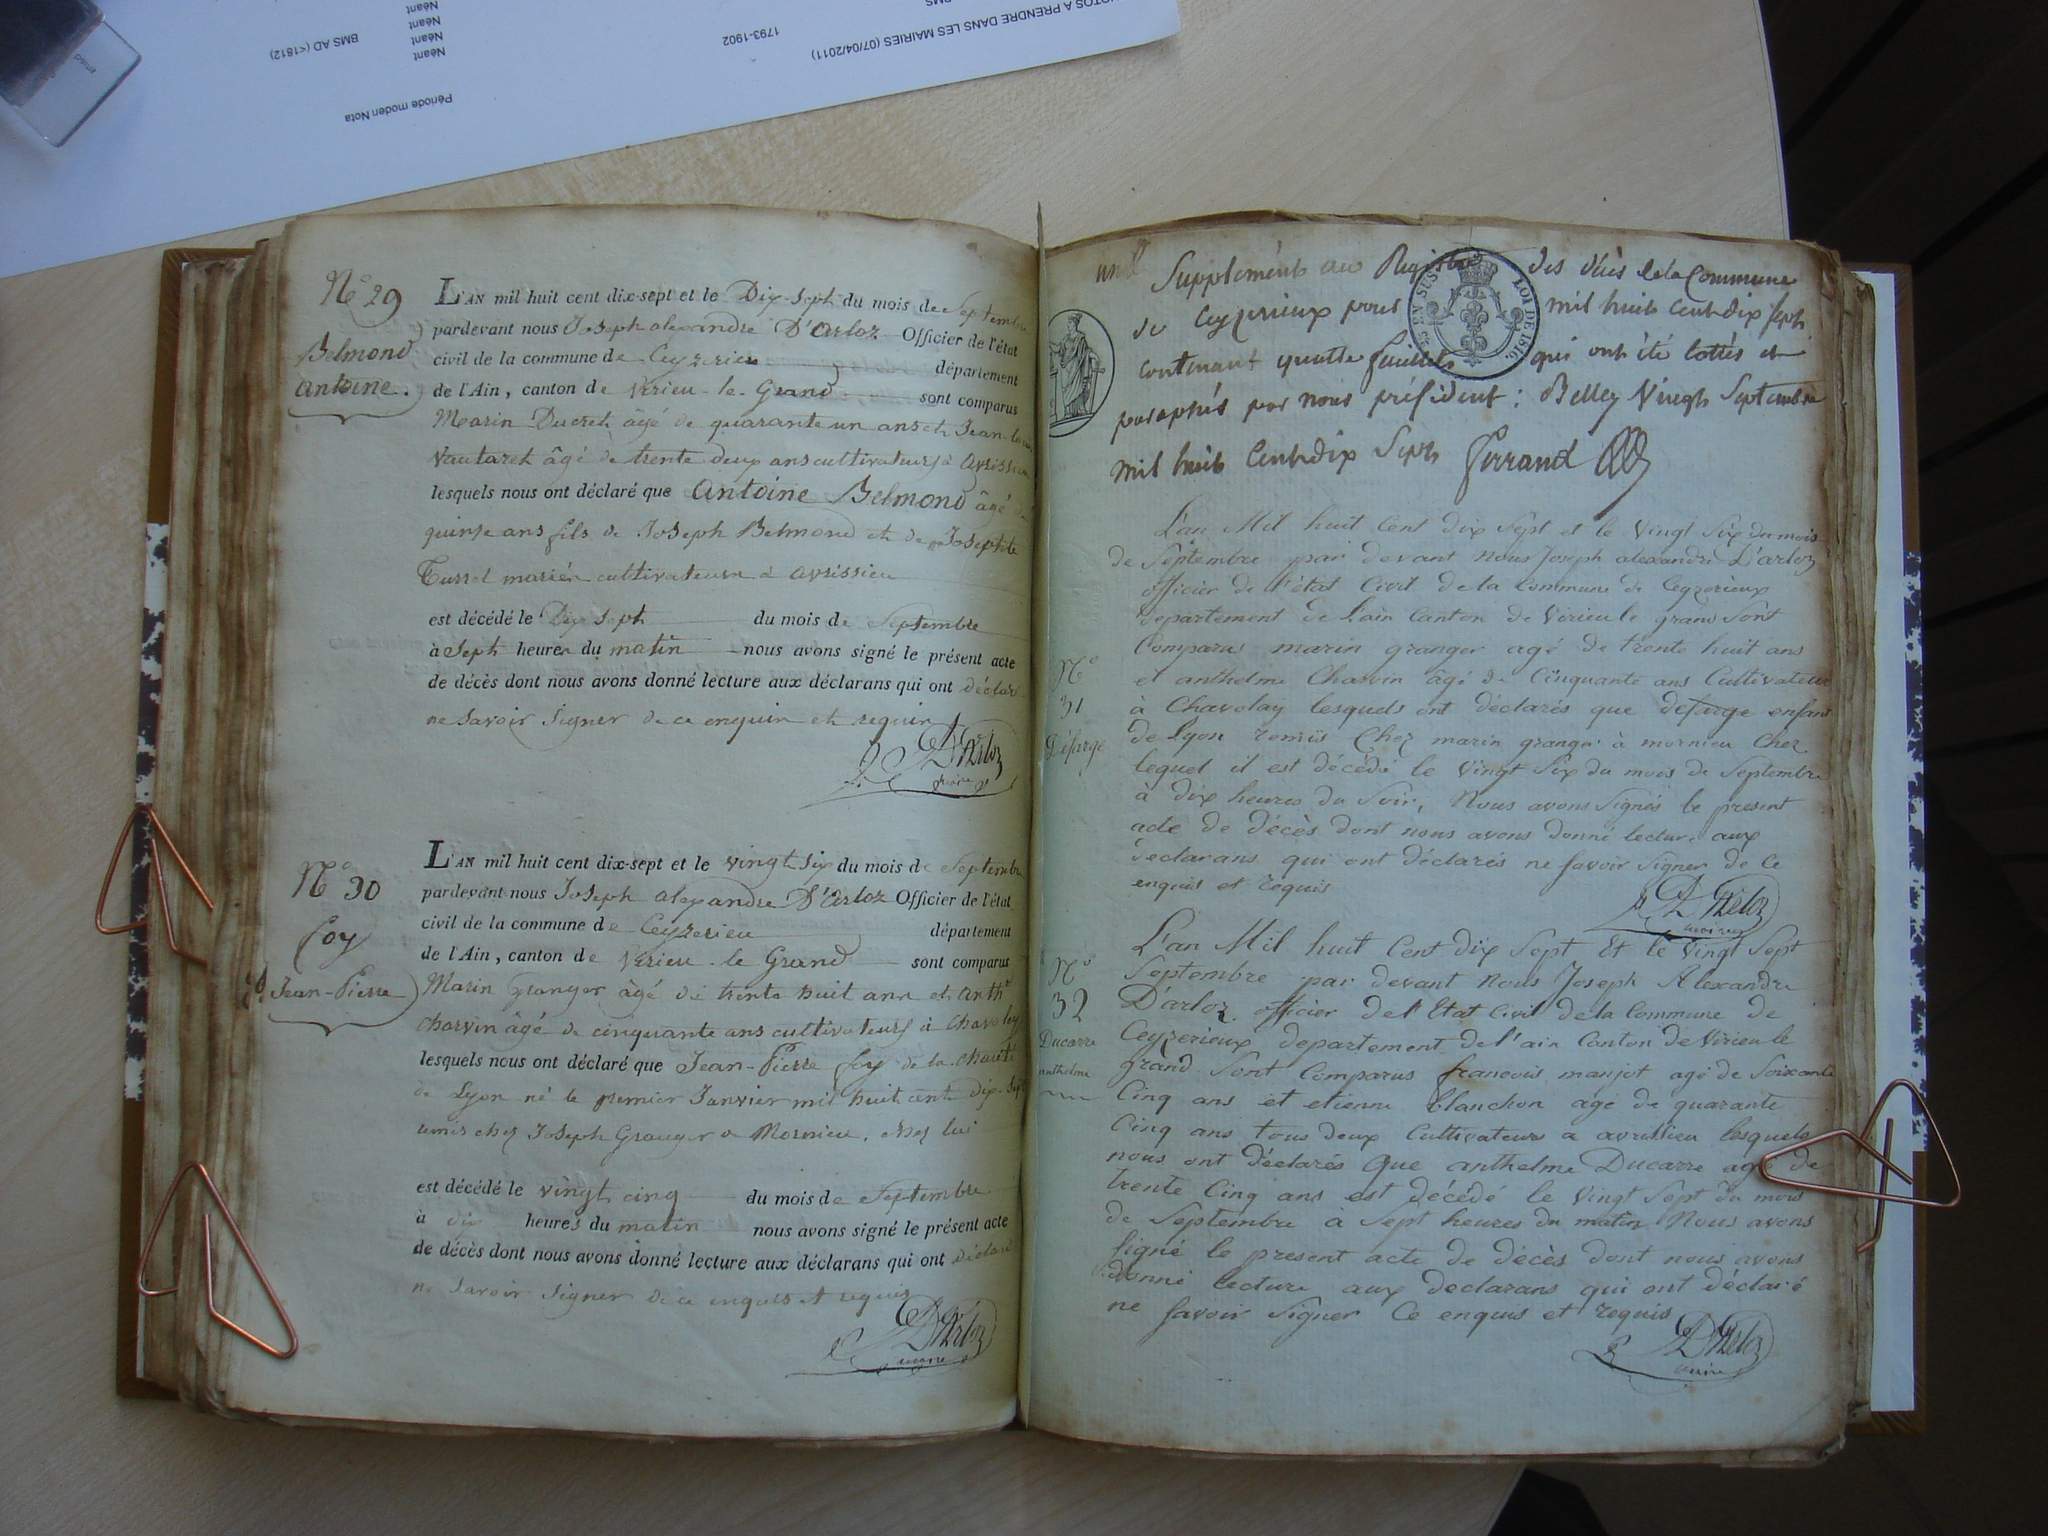 PHOTOS A PRENDRE DANS LES MAIRIES (07/04/2011)
BMS
1793-1902
BMS AD (<1812)
Néant
Néant
Néant
Néant
Période moden Nota
N° 29
Belmond
antoine.
L'AN mil huit cent dix-sept et le Dix-Sept du mois de Septembre
pardevant nous Joseph alexandre D'Arloz Officier de l'état
civil de la commune de Ceyzerieu département
de l'Ain, canton de Virieu-le-Grand sont comparus
Marin Ducret âgé de quarante un ans et Jean-
Vautaret âgé de trente deux ans cultivateurs à Avrissieu
lesquels nous ont déclaré que Antoine Belmond âgé de
quinze ans fils de Joseph Belmond et de Josephte
Turrel mariés cultivateurs à avrissieu
est décédé le Dix sept du mois de Septembre
à Sept heures du matin nous avons signé le présent acte
de décès dont nous avons donné lecture aux déclarans qui ont déclaré
ne Savoir Signer de ce enquis et requis
D'Arloz
maire
N° 30
foy
Jean-Pierre
L'AN mil huit cent dix-sept et le vingt six du mois de Septembre
pardevant nous Joseph alexandre D'Arloz Officier de l'état
civil de la commune de Ceyzerieu département
de l'Ain, canton de Virieu-le Grand sont comparus
Marin Granger âgé de trente huit ans et Anth.
Charvin âgé de cinquante ans cultivateurs à Chavoley
lesquels nous ont déclaré que Jean-Pierre foy de la charité
de Lyon né le premier Janvier mil huit cent dix-sept
remis chez Joseph Granger a Mornieu, chez lui
est décédé le vingt cinq du mois de Septembre
à dix heures du matin nous avons signé le présent acte
de décès dont nous avons donné lecture aux déclarans qui ont déclaré
ne Savoir Signer de ce enquis et requis
D'Arloz
maire
Supplément au Registre des décès de la Commune
de Ceyzerieux pour mil huit cent dix sept
contenant quatre feuillets qui ont été cottés et
paraphés par nous président: Belley Vingt Septembre
mil huit Cent dix Sept Ferrand
EN SUS LOI DE 1816.
N°
31
Defarge
L'an Mil huit Cent dix Sept et le Vingt Six du mois
de Septembre par devant nous Joseph alexandre D'arloz
officier de l'état Civil de la Commune de Ceyzerieux
departement de L'ain Canton de Virieu le grand Sont
Comparus marin granger agé de trente huit ans
et anthelme Charvin âgé de Cinquante ans Cultivateurs
à Chavolay lesquels ont déclarés que defarge enfant
de Lyon remis Chez marin granger à mornieu chez
lequel il est décédé le Vingt Six du mois de Septembre
à dix heures du Soir, Nous avons Signés le present
acte de décès dont nous avons donné lecture aux
declarans qui ont déclarés ne savoir Signer de Ce
enquis et requis
D'Arloz
maire
N°
32
Ducarre
anthelme
L'an Mil huit Cent dix Sept Et le Vingt Sept
Septembre par devant Nous Joseph Alexandre
D'arloz officier de l'Etat Civil de la Commune de
Ceyzerieux departement de l'ain Canton de Virieu le
grand Sont Comparus francois manjot agé de Soixante
Cinq ans et etienne blanchon agé de quarante
Cinq ans tous deux Cultivateurs a avrissieu lesquels
nous ont déclarés Que anthelme Ducarre agé de
trente Cinq ans est décédé le Vingt Sept du mois
de Septembre à Sept heures du matin Nous avons
signé le present acte de décès dont nous avons
donné lecture aux declarans qui ont déclaré
ne savoir Signer Ce enquis et requis
D'Arloz
maire